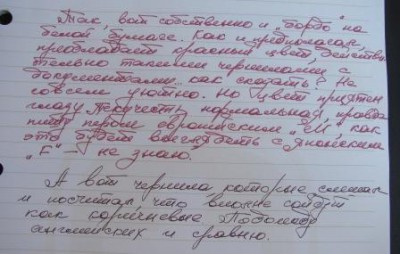 Так, вот собственно и "бордо" на
белой бумаге. Как и предполагал,
преобладает красный цвет, действи-
тельно такими чернилами с
документами, как сказать? Не
совсем уютно. Но цвет приятен
глазу. Текучесть нормальная, правда
пишу пером европейским "М", как
это будет выглядеть с японским
"F" — не знаю.
А вот чернила которые смешал
и посчитал что вполне сойдут
как коричневые. Побольше
английских и сравню.